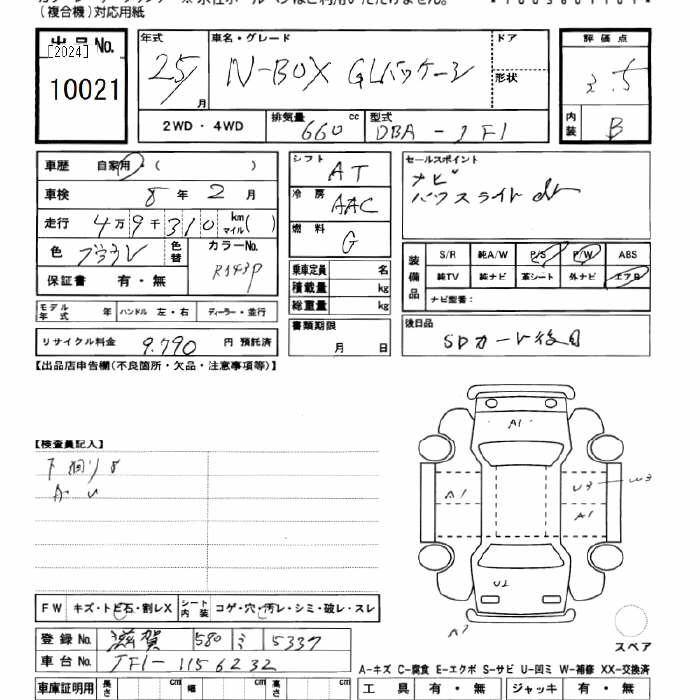 (複合機)対応用紙
出品No.
[2024]
10021
年式 25 月
車名・グレード N-BOX GLパッケージ
ドア
形状
2WD・4WD
排気量 660 cc
型式 DBA-JF1
評価点 3.5
内装 B
車歴 自家用・( )
車検 8 年 2 月
走行 4万9千310 km マイル( )
色
色替
カラーNo. R143P
保証書 有・無
モデル年式 年
ハンドル 左・右
ディーラー・並行
リサイクル料金 9.790 円 預託済
シフト AT
冷房 AAC
燃料 G
乗車定員 名
積載量 kg
総重量 kg
書類期限
月 日
セールスポイント
ナビ
装備品
S/R 純A/W P/S P/W ABS
純TV 純ナビ 革シート 外ナビ エアB
ナビ型番:
後日品
SDカード後日
【出品店申告欄(不良箇所・欠品・注意事項等)】
【検査員記入】
下廻りS
A1
A1
U3
W3
A1
U1
A2
スペア
FW キズ・トビ石・割レX
シート内装 コゲ・穴・汚レ・シミ・破レ・スレ
登録No. 滋賀 580 ミ 5337
車台No. JF1-1156232
A-キズ C-腐食 E-エクボ S-サビ U-凹ミ W-補修 XX-交換済
車庫証明用 長さ cm 幅 cm 高さ cm
工具 有・無 ジャッキ 有・無